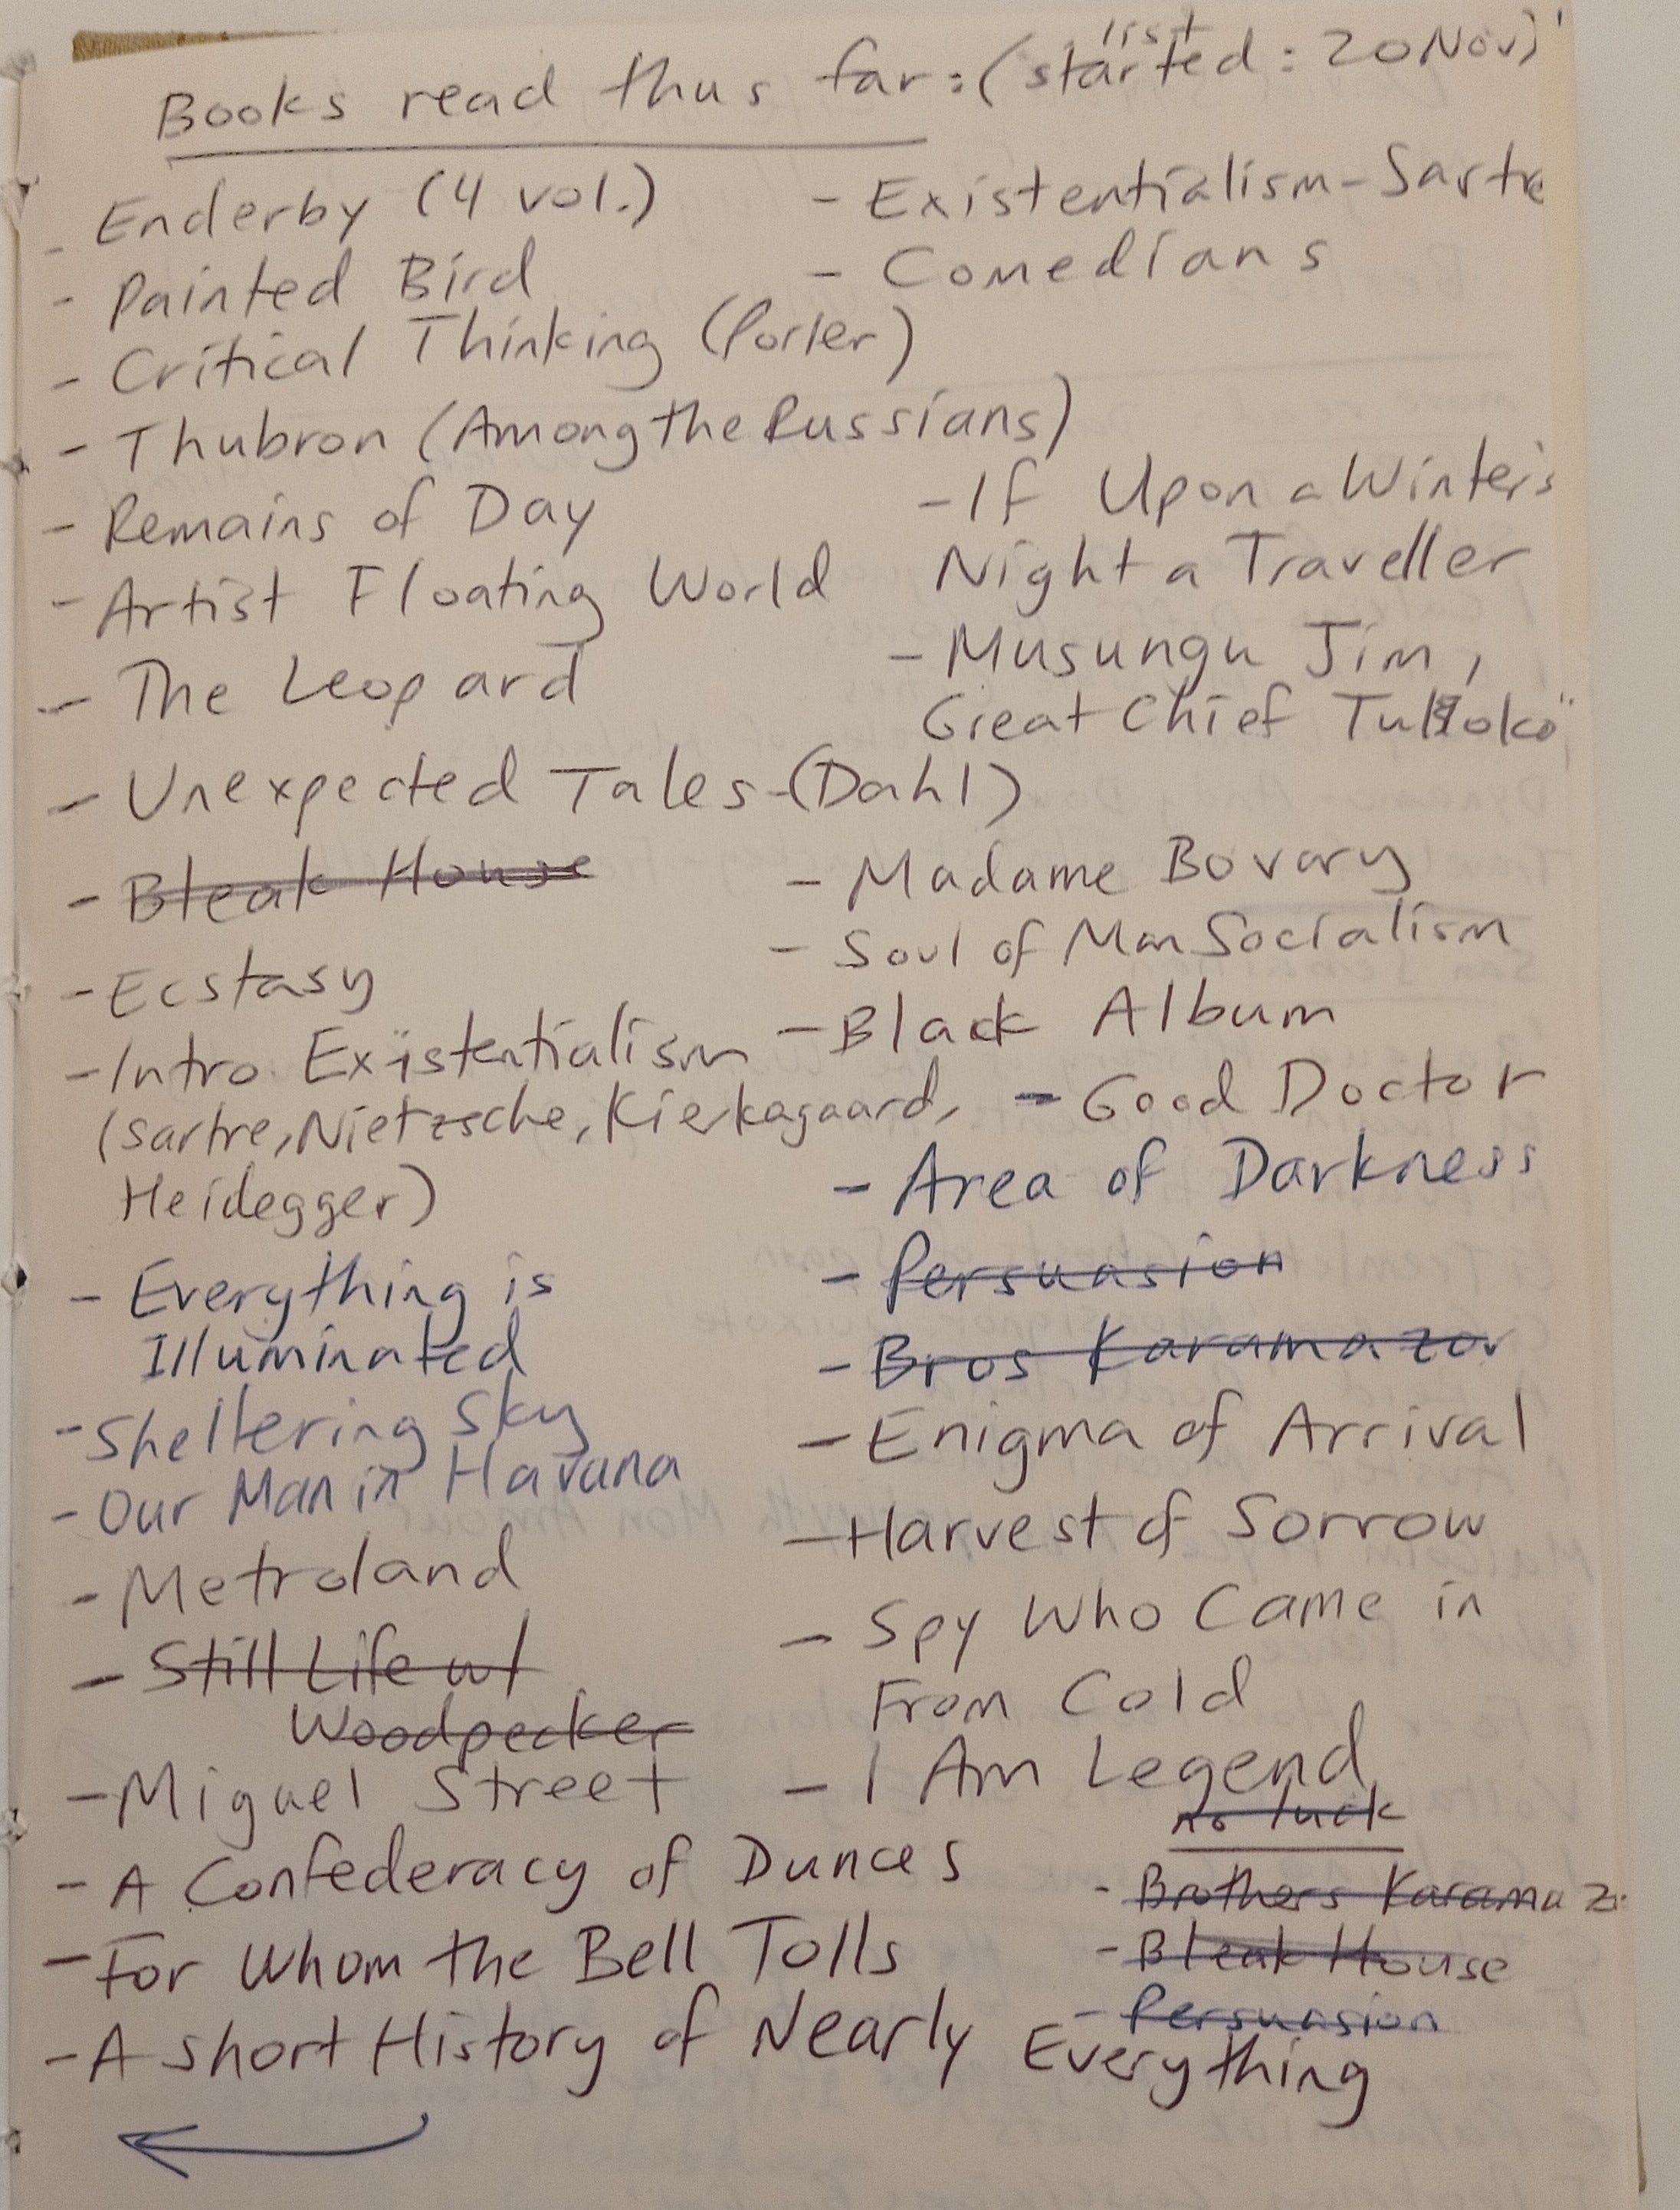 Books read thus far: (list started: 20 Nov)
- Enderby (4 vol.)
- Painted Bird
- Critical Thinking (Porter)
- Thubron (Among the Russians)
- Remains of Day
- Artist Floating World
- The Leopard
- Unexpected Tales - (Dahl)
- Bleak House
- Ecstasy
- Intro Existentialism
(Sartre, Nietzsche, Kierkagaard,
Heidegger)
- Everything is
Illuminated
- Sheltering Sky
- Our Man in Havana
- Metroland
- Still Life w/
Woodpecker
- Miguel Street
- A Confederacy of Dunces
- For Whom the Bell Tolls
- A Short History of Nearly Everything
- Existentialism - Sartre
- Comedians
- If Upon a Winter's
Night a Traveller
- Musungu Jim,
Great Chief
- Madame Bovary
- Soul of Man Socialism
- Black Album
- Good Doctor
- Area of Darkness
- Persuasion
- Bros Karamazov
- Enigma of Arrival
- Harvest of Sorrow
- Spy Who Came in
From Cold
- I Am Legend
no luck
- Brothers Karamaz
- Bleak House
- Persuasion